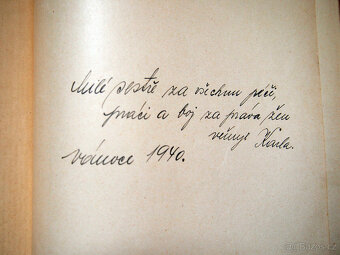 Milé sestře za všechnu péči,
práci a boj za práva žen
věnuje Karla.
vánoce 1940.